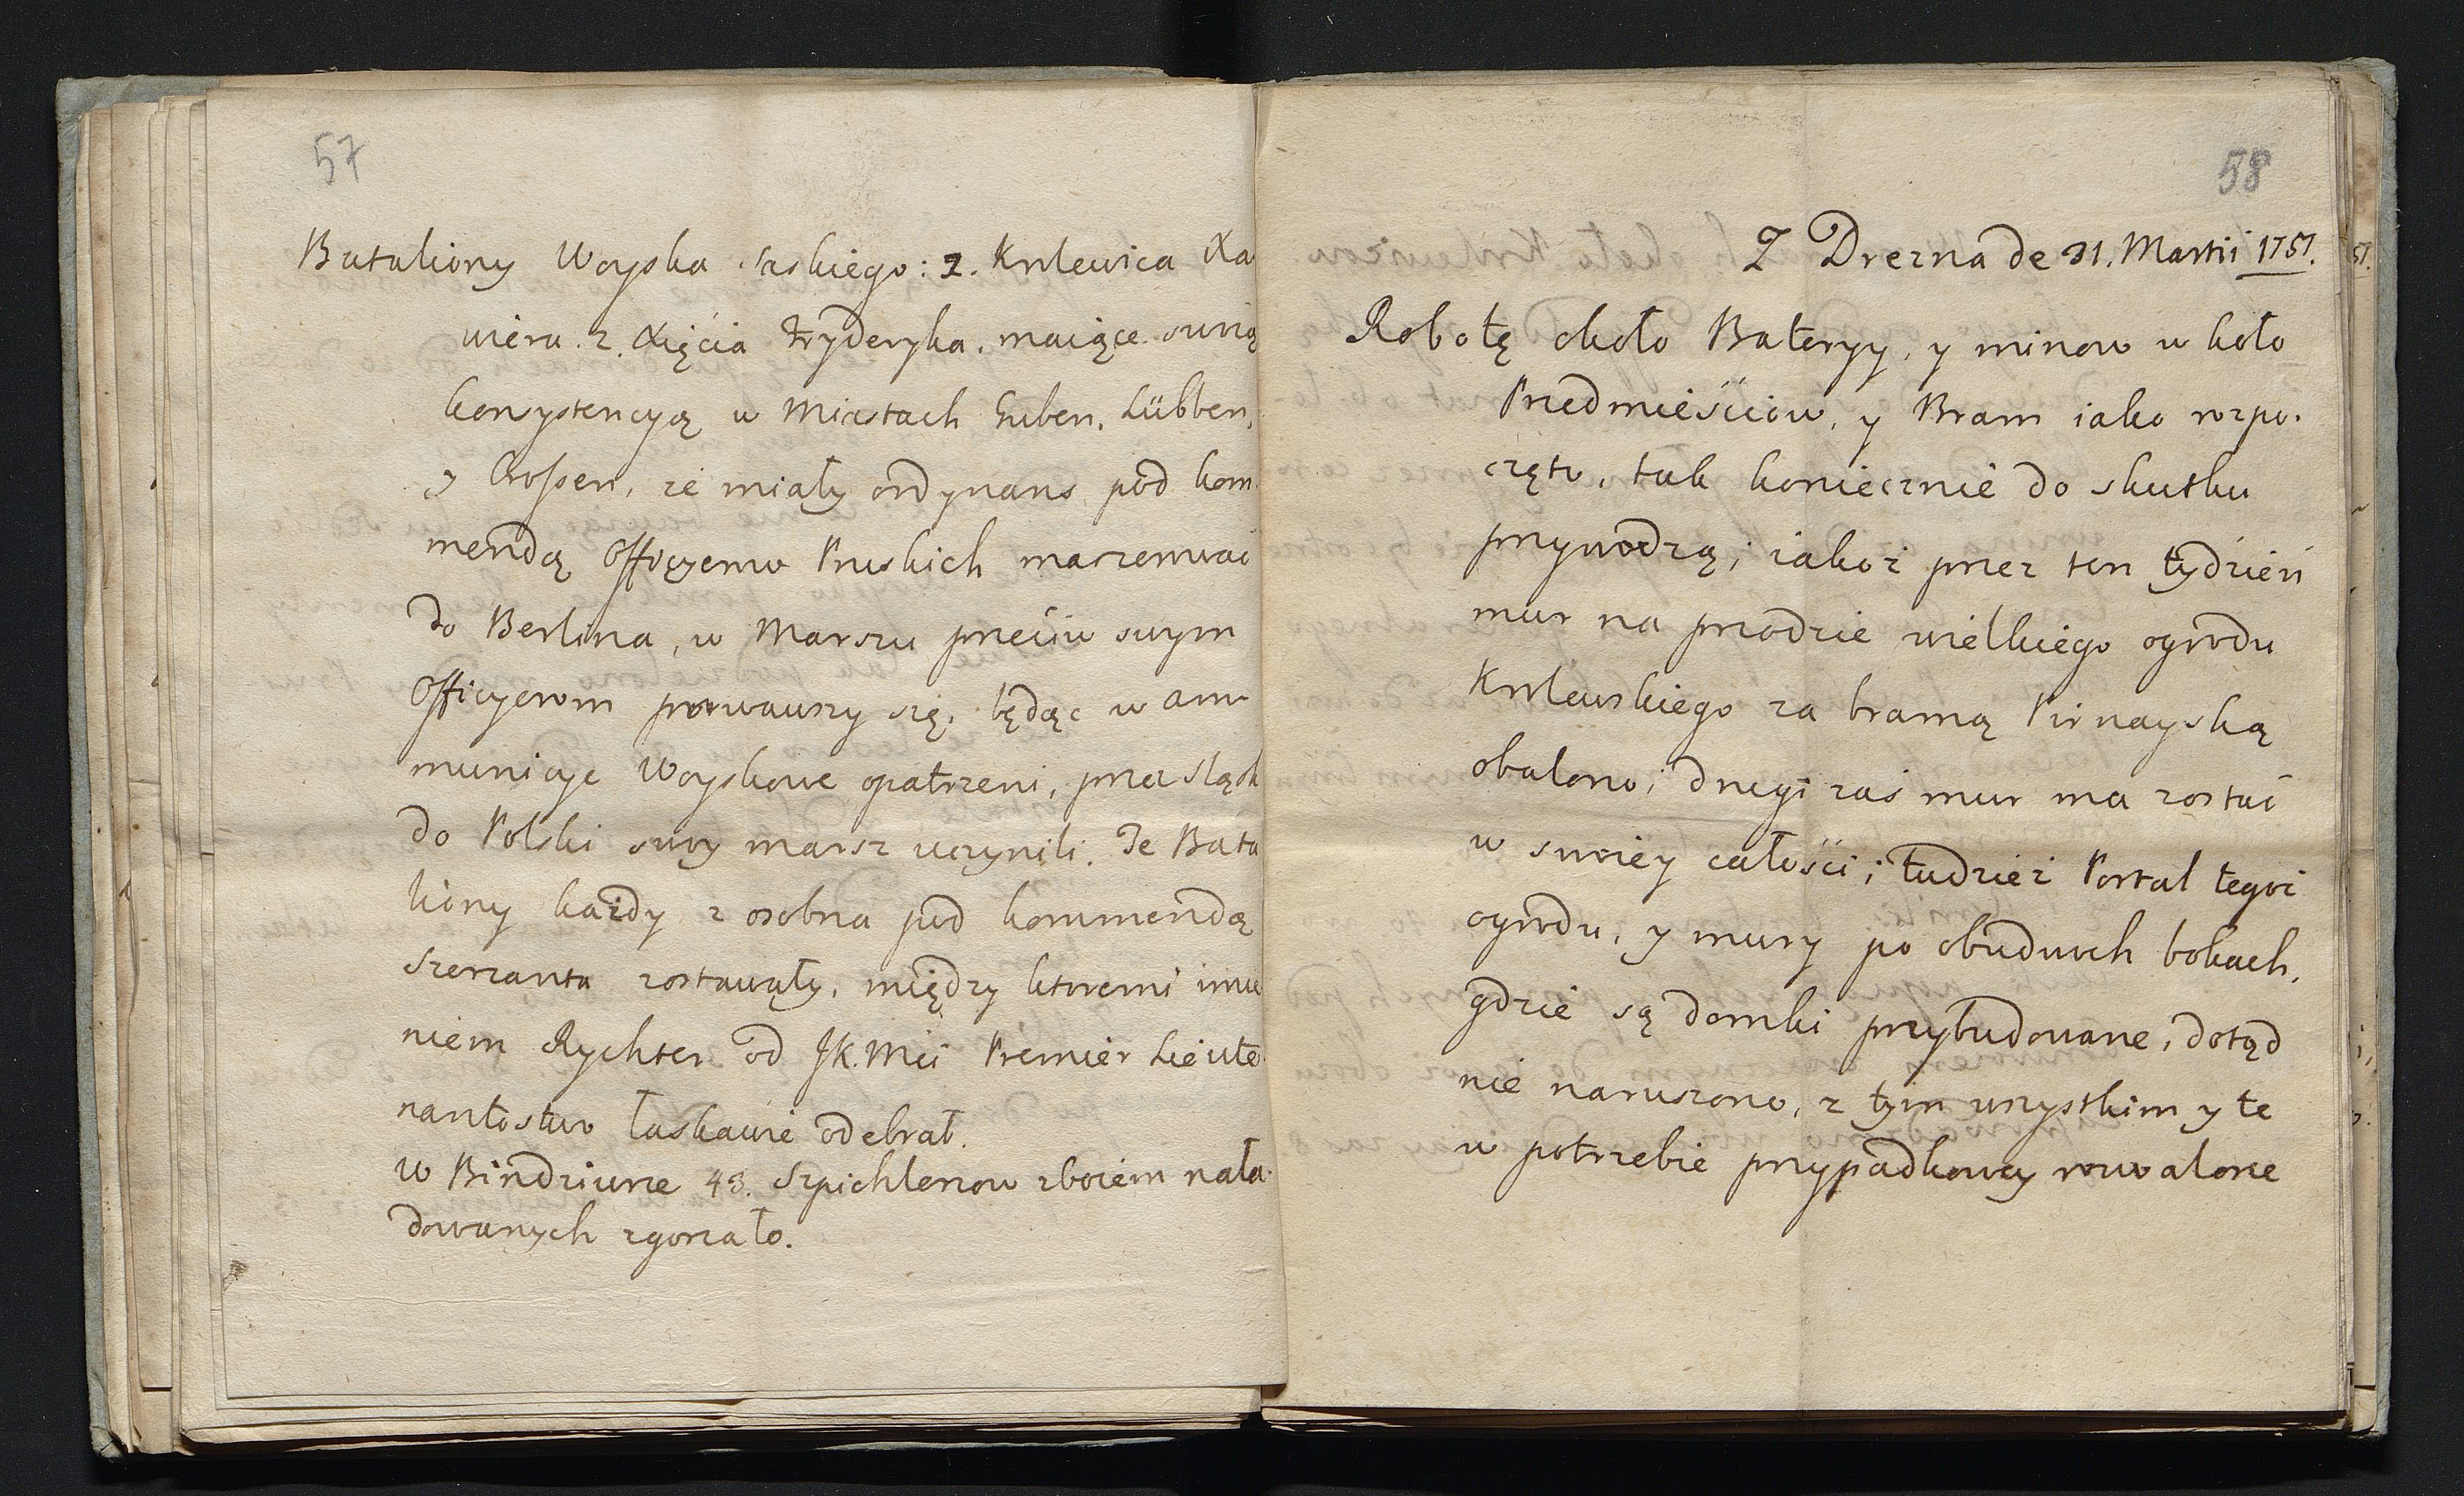 57
Bataliony Woyska Saskiego: 2. Krolewica Xa
wiera. 2. Xięcia Fryderyka. maiące swoią
konsystencyą w Miastach Guben, Lübben,
y Crossen, że miały ordynans pod kom
mendą Officyerow Pruskich maszerować
do Berlina, w Marszu prećiw swym
Officyerom porwawszy się, będąc w am
municye Woyskowe opatrzeni, przez Sląsk
do Polski swoy marsz uczynili. Te Bata
liony każdy z osobna pod kommendą
Szerzanta zostawały, między ktoremi imie
niem Rychter od JK. Mći Premier Lieute
nantostwo łaskawie odebrał.
W Bindziwne 43. Szpichlerzow zbożem nała
dowanych zgorzało.
58
Z Drezna de 31. Martii 1757.
Robotę około Bateryy, y minow w koło
Przedmieściow, y Bram iako rozpo.
częto, tak koniecznie do skutku
przywodzą; iakoż przez ten tydzień
mur na przodzie wielkiego ogrodu
Krolewskiego za bramą Pirnayską
obalono; drugi zaś mur ma zostać
w swoiey całości; tudzież Portal tegoż
ogrodu, y mury po obudwoch bokach,
gdzie są domki przybudowane, dotąd
nie naruszono, z tym wszystkim y te
w potrzebie przypadkowey rozwalone